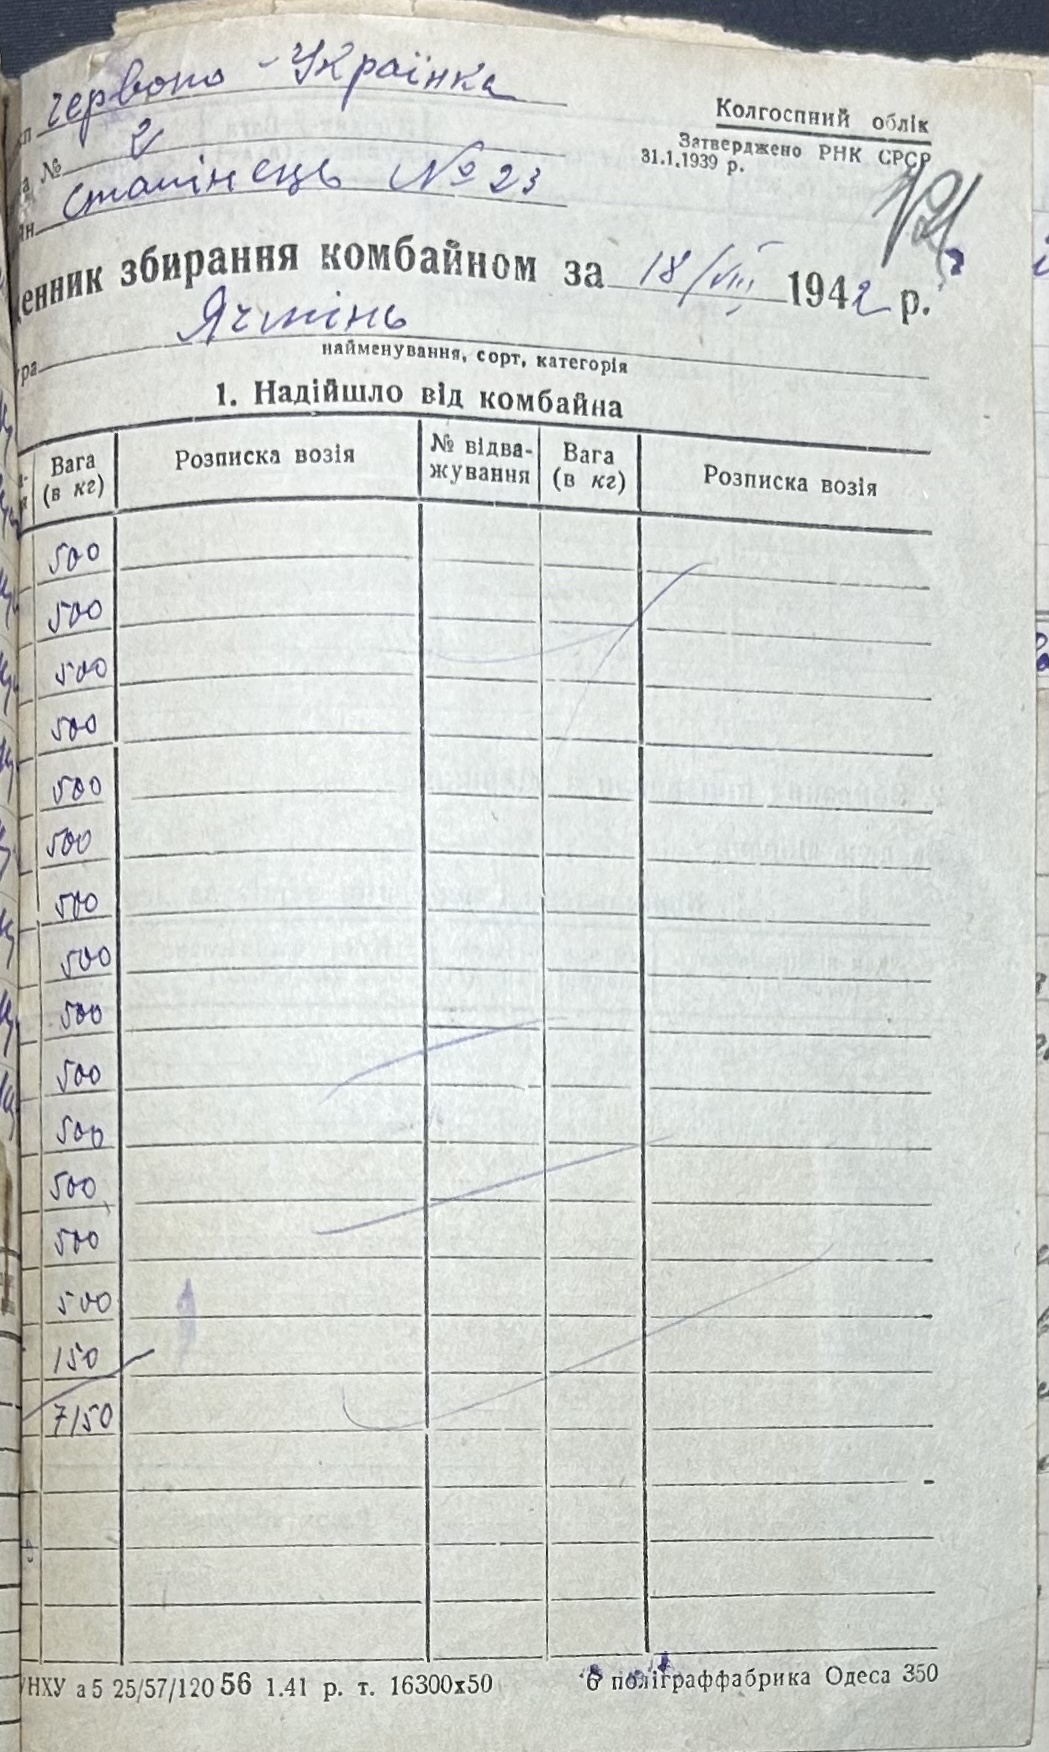 Червоно-Українка
Колгоспний облік
№ 2
Затверджено РНК СРСР
31.1.1939 р.
Сталінець № 23
енник збирання комбайном за 18/VIII 1942 р.
Ячмінь
ра
найменування, сорт, категорія
1. Надійшло від комбайна
Вага (в кг) Розписка возія № відважування Вага (в кг) Розписка возія
500
500
500
500
500
500
500
500
500
500
500
500
500
500
150
7150
УНХУ а5 25/57/120 56 1.41 р. т. 16300х50 6 поліграффабрика Одеса 350